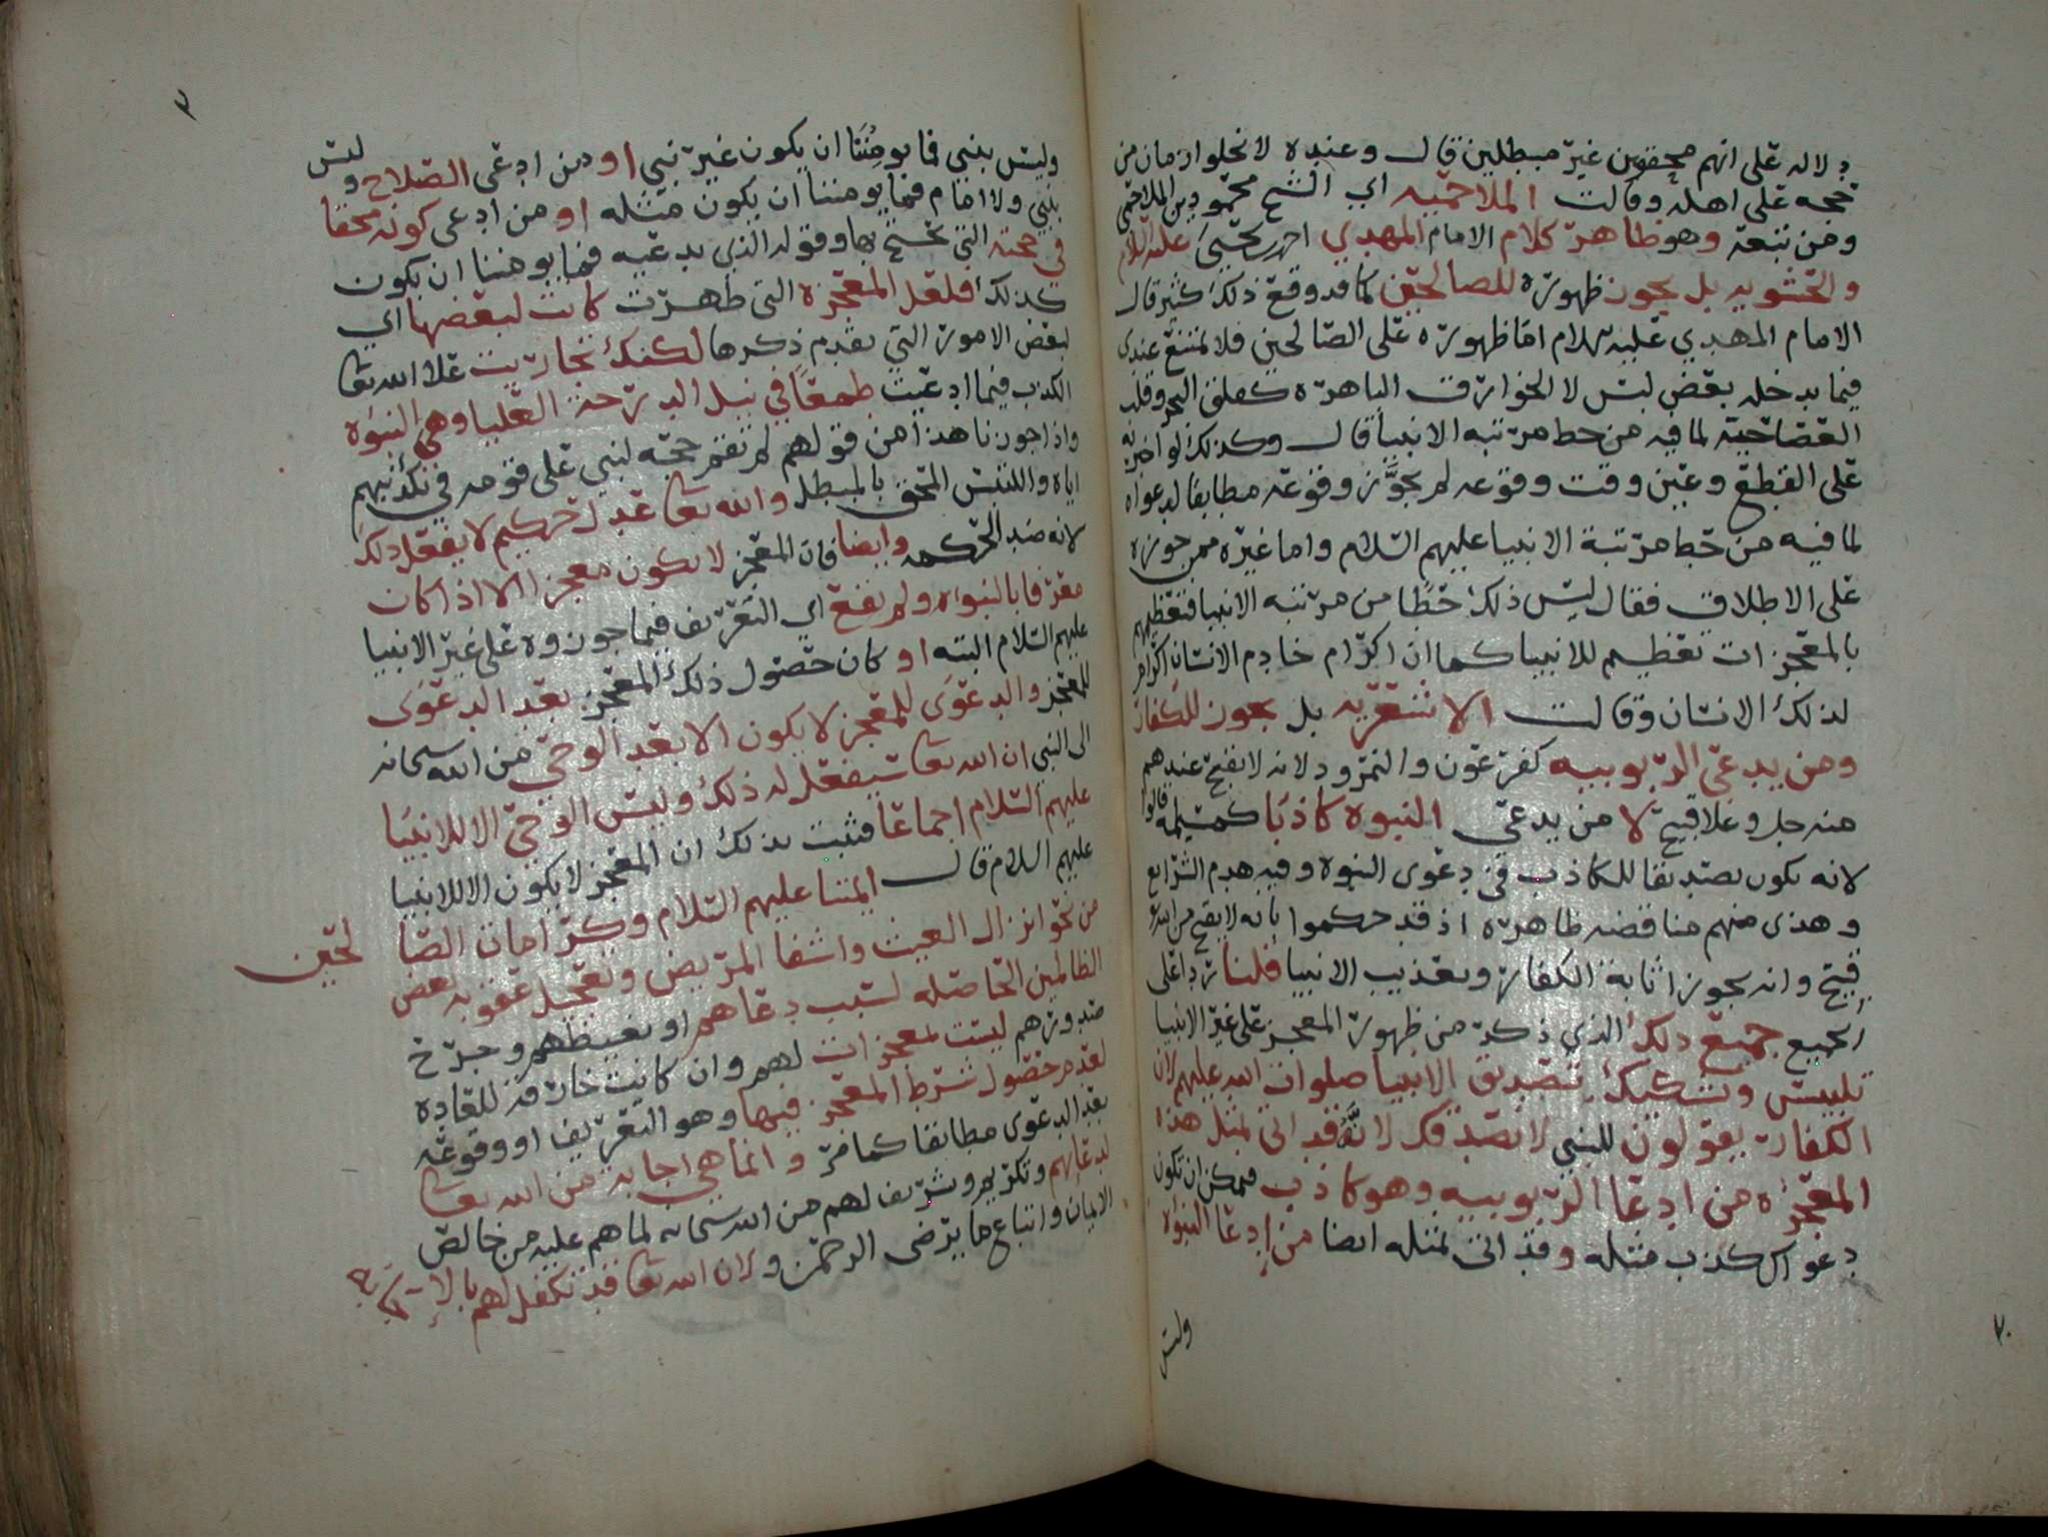 دلاله على انهم محقون غير مبطلين قال وعنده لا تخلوا زمان من
حجه على اهله وقالت الملاحميه اي الشيخ محمود بن الملاحمي
ومن تبعه وهو ظاهر كلام الامام المهدي احمد بن يحيى عليه السلام
والحشويه بل يجوز ظهوره للصالحين كما قد وقع ذلك كثير قال
الامام المهدي عليه السلام اما ظهوره على الصالحين فلا يمتنع عندي
فيما يدخله بعض لبس لا الخوارق الباهره كفلق البحر وقلب
العصا حيه لما فيه من حط مرتبه الانبيا قال وكذلك لو اخبر به
على القطع وعين وقت وقوعه لم يجوَّز وقوعه مطابقا لدعواه
لما فيه من حط مرتبة الانبيا عليهم السلام واما غيره ممن جوزه
على الاطلاق فقال ليس ذلك حطا من مرتبه الانبيا فتعظيمهم
بالمعجزات تعظيم للانبيا كما ان اكرام خادم الانسان اكرام
لذلك الانسان وقالت الاشعريه بل يجوز للكفار
ومن يدعي الربوبيه كفرعون والنمرود لانه لا يقبح عندهم
منه جل وعلا قبيح لا من يدعي النبوه كاذبا كمسيلمه قالوا
لانه يكون تصديقا للكاذب في دعوى النبوه وفيه هدم الشرايع
وهذى منهم مناقضه ظاهره اذ قد حكموا بانه لا يقبح من الله
قبيح وانه يجوز اثابة الكفار وتعذيب الانبيا قلنا ردا على
الجميع جميع ذلك الذي ذكر من ظهور المعجز على غير الانبيا
تلبيس وتشكيك بتصديق الانبيا صلوات الله عليهم لان
الكفار يقولون للنبي لا نصدقك لانَّه قد اتى بمثل هذا
المعجزه من ادعا الربوبيه وهو كاذب فيمكن ان تكون
دعواك كذب مثله وقد اتى بمثله ايضا من ادعا النبوه
وليس
٢
٣
وليس بنبي فما يومِنُنَا ان يكون غير نبي او من ادعى الصلاح وليس
بنبي ولا امام فما يومننا ان يكون مثله او من ادعى كونه محقا
في محنته التي تحتج بها وقوله الذي يدعيه فما يومننا ان يكون
كذلك فلعل المعجزه التي ظهرت كانت لبعضها اي
لبعض الامور التي تقدم ذكرها لكنك تجاريت علا الله تعا
الكذب فيما ادعيت طمعًا في نيل الدرجة العليا وهي النبوه
واذا جوزنا هذا من قولهم لم تقم حجه لنبي على قومه في تكذيبهم
اياه والتبس المحق بالمبطل والله تعا عدل حكيم لا يفعل ذلك
لانه ضد الحكمه وايضا فان المعجز لا يكون معجز الا اذا كان
معرفا بالنبواه ولم يقع اي التعريف فيما جوزوه على غير الانبيا
عليهم السلام البته او كان حصول ذلك المعجز بعد الدعوى
للمعجز والدعوى للمعجز لا يكون الا بعد الوحي من الله سبحانه
الى النبي ان الله تعا سيفعل له ذلك وليس الوحي الا للانبيا
عليهم السلام اجماعًا فثبت بذلك ان المعجز لا يكون الا للانبيا
عليهم السلام قال ايمتنا عليهم السلام وكرامات الصالحين
من نحو انزال الغيث واشفا المريض وتعجيل عقوبه بعض
الظالمين الحاصله لسبب دعاهم او تغيظهم وحرج
صدورهم ليست بمعجزات لهم وان كانت خارقه للعاده
لعدم حصول شرط المعجز فيها وهو التعريف او وقوعه
بعد الدعوى مطابقا كما مر وانما هي اجابه من الله تعا
لدعائهم وتكريم وتشريف لهم من الله سبحانه لما هم عليه من خالص
الايمان واتباع ما يرضى الرحمن ولان الله تعا قد تكفل لهم بالاجابه